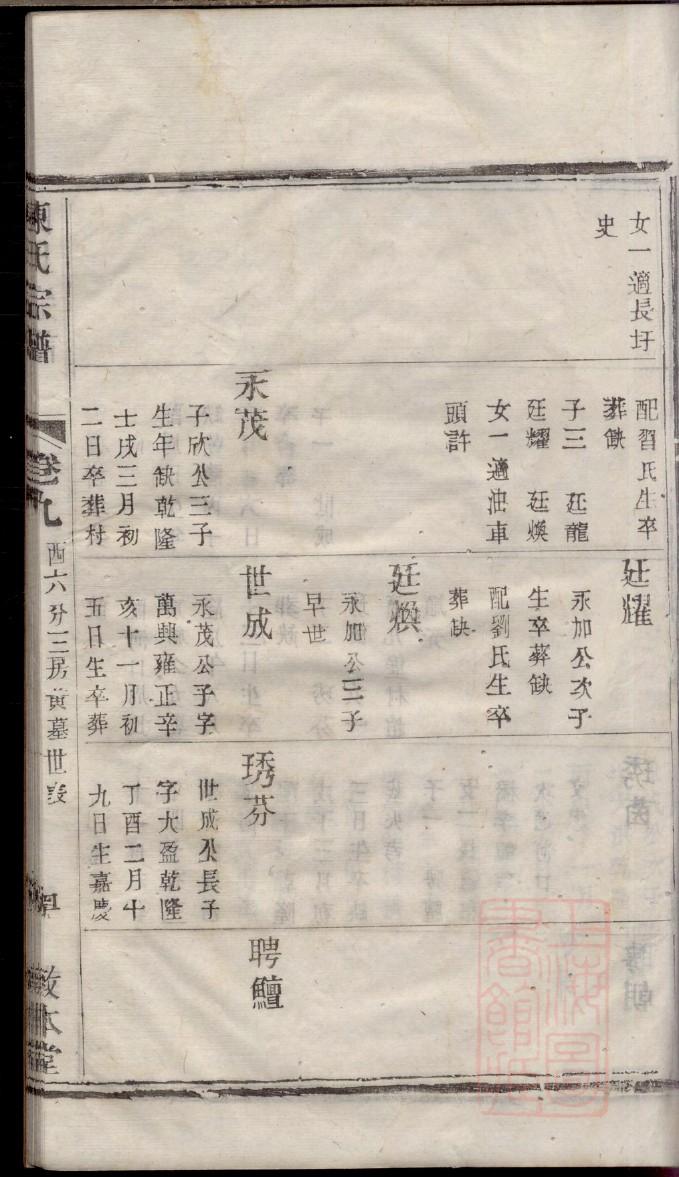 女一適長圩
史
配習氏生卒
葬缺
子三 廷龍
廷耀 廷煥
女一適油車
頭許
永茂
子欣公三子
生年缺乾隆
壬戌三月初
二日卒葬村
廷耀
永加公次子
生卒葬缺
配劉氏生卒
葬缺
廷煥
永加公三子
早世
世成
永茂公子字
萬興雍正辛
亥十一月初
五日生卒葬
琇芬
世成公長子
字大盈乾隆
丁酉二月十
九日生嘉慶
聘鱣
陳氏宗譜
卷九
西六分三房黃墓世表
敦本堂
上海圖書館藏